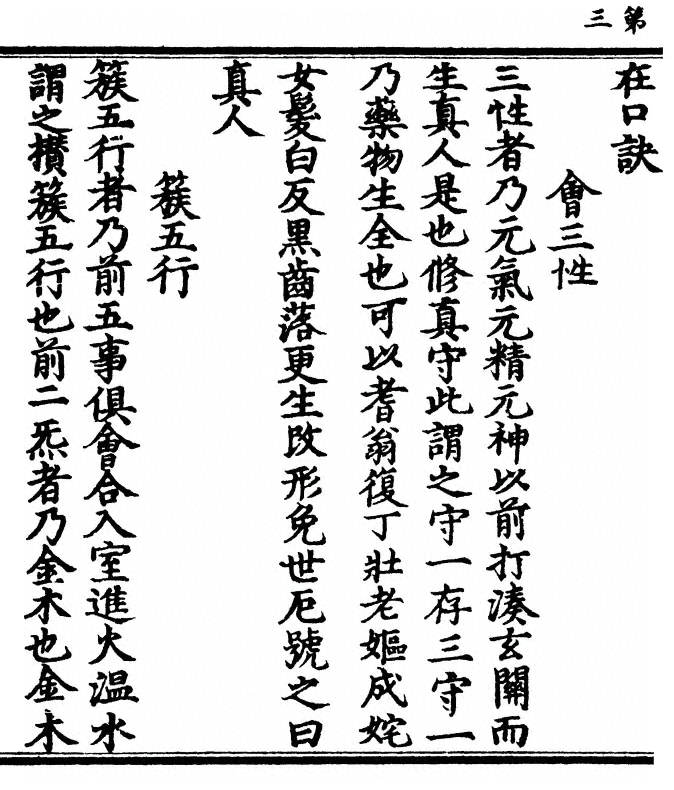 第三
在口訣
會三性
三性者乃元氣元精元神以前打湊玄關而
生真人是也修真守此謂之守一存三守一
乃藥物生全也可以耆翁復丁壯老嫗成姹
女髮白反黑齒落更生改形免世厄號之曰
真人
簇五行
簇五行者乃前五事俱會合入室進火溫水
謂之攢簇五行也前二炁者乃金木也金木